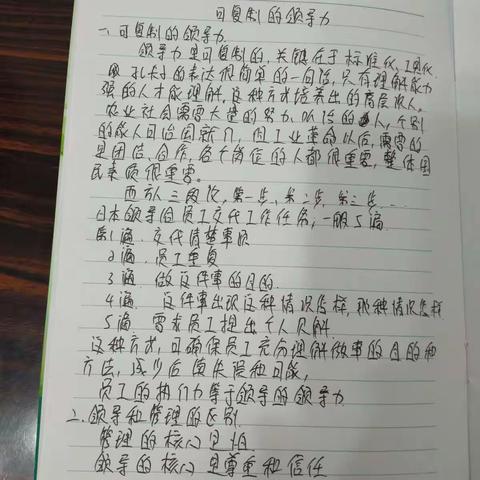 可复制的领导力
一、可复制的领导力
领导力是可复制的，关键在于标准化、工具化
孔夫子的表达很简单的一句话，只有理解能力
强的人才能理解，这种方式培养出的高层次人。
农业社会需要大量的努力、听话的人，个别
的能人可治国，工业革命以后，需要的
是团结、合作，各个岗位的人都很重要，整体国
民素质很重要。
西方人三段论，第一步、第二步、第三步……
日本领导给员工交代工作任务，一般5遍
第1遍、交代清楚事项
2遍、员工重复
3遍、做这件事的目的
4遍、这件事出现这种情况怎样，那种情况怎样
5遍、需求员工提出个人见解
这种方式，可确保员工充分理解做事的目的和
方法，减少后续失误和可能，
员工的执行力等于领导的领导力
二、领导和管理的区别
管理的核心是怕
领导的核心是尊重和信任